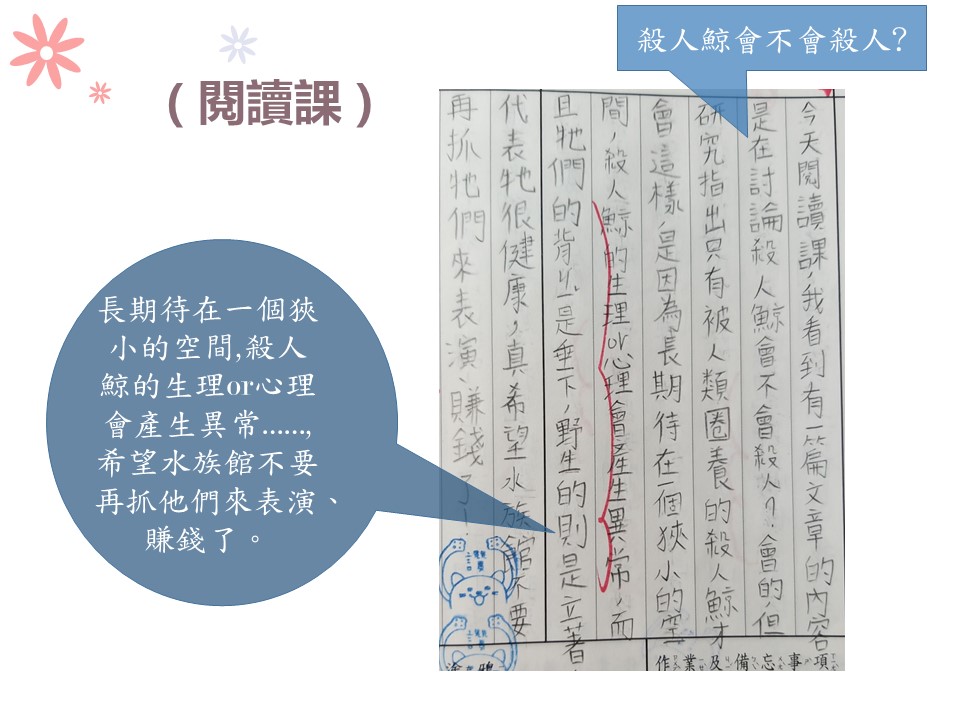 （閱讀課）
殺人鯨會不會殺人?
長期待在一個狹
小的空間,殺人
鯨的生理or心理
會產生異常……,
希望水族館不要
再抓他們來表演、
賺錢了。
今天閱讀課,我看到有一篇文章的內容
是在討論殺人鯨會不會殺人?會的,但
研究指出只有被人類圈養的殺人鯨才
會這樣,是因為長期待在一個狹小的空
間,殺人鯨的生理or心理會產生異常,而
且牠們的背ㄑㄧˊ是垂下,野生的則是立著
代表牠很健康,真希望水族館不要
再抓牠們來表演、賺錢了!
作業及備忘事項